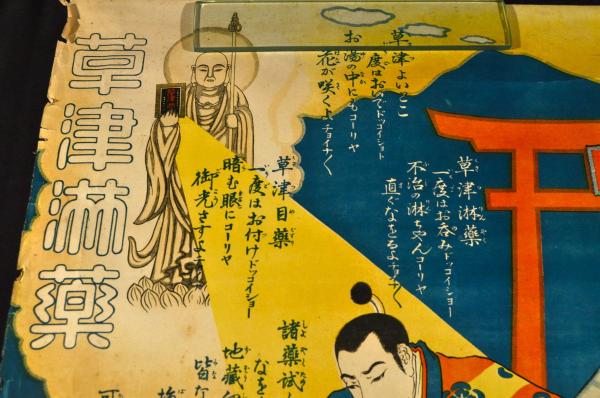 草津淋薬
草津よいとこ
一度はおいでドッコイショー
お湯の中にもコーリヤ
花が咲くよチョイナ〱
草津淋薬
一度はお呑みドッコイショー
不治の淋ちやんコーリヤ
直ぐなをるよチョイナ〱
草津目薬
一度はお付けドッコイショー
暗む眼にコーリヤ
御光さすよチョイナ〱
諸薬試し
地蔵
なを
皆な